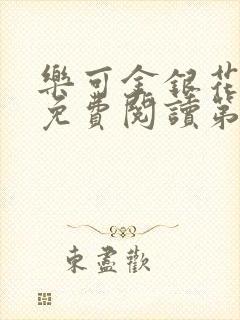 樂可金銀花
免費閱讀第
東盡歡